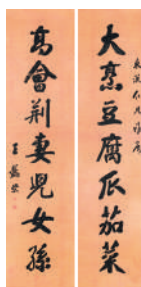 大烹豆腐瓜茄菜
高會荆妻兒女孫